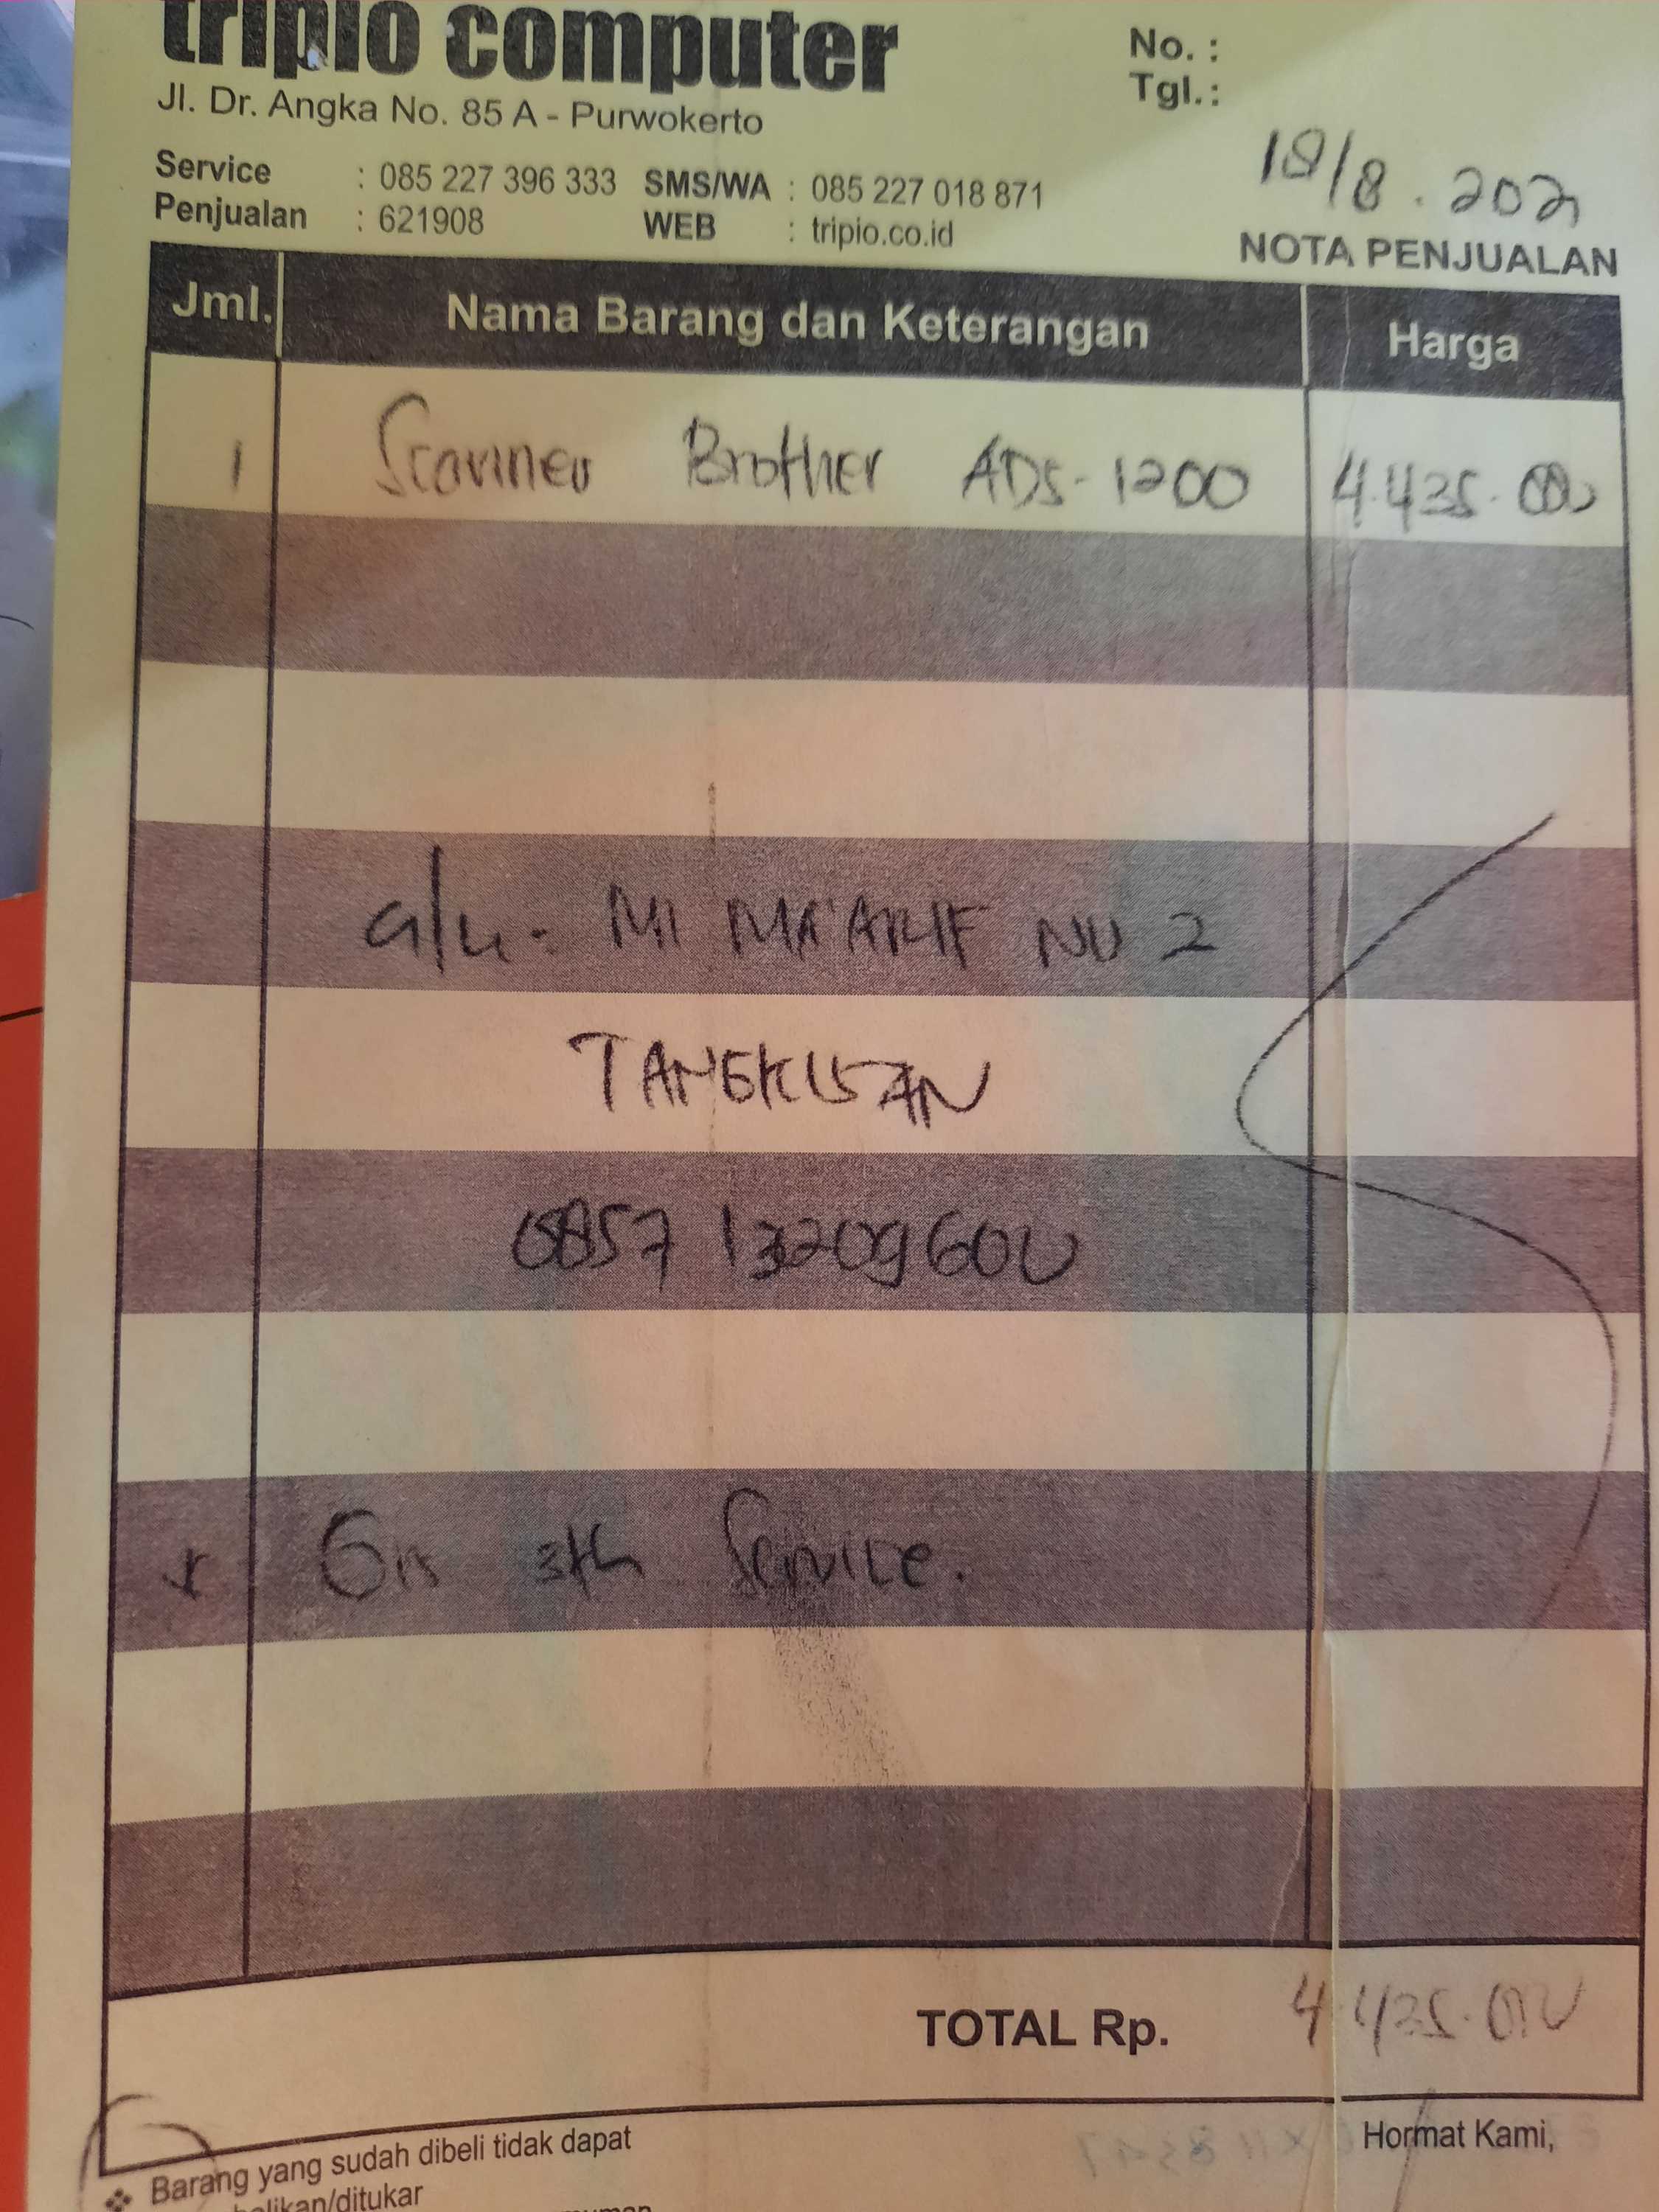 tripio computer
Jl. Dr. Angka No. 85 A - Purwokerto
Service : 085 227 396 333 SMS/WA : 085 227 018 871
Penjualan : 621908 WEB : tripio.co.id
No. :
Tgl. :
18/8.2021
NOTA PENJUALAN
Jml. Nama Barang dan Keterangan Harga
1 Scanner Brother ADS-1200 4.435.000
a/n. MI MA'ARIF NU 2
TANGKISAN
0857 13209600
Grs 3th Service.
TOTAL Rp. 4.435.000
Barang yang sudah dibeli tidak dapat
Hormat Kami,